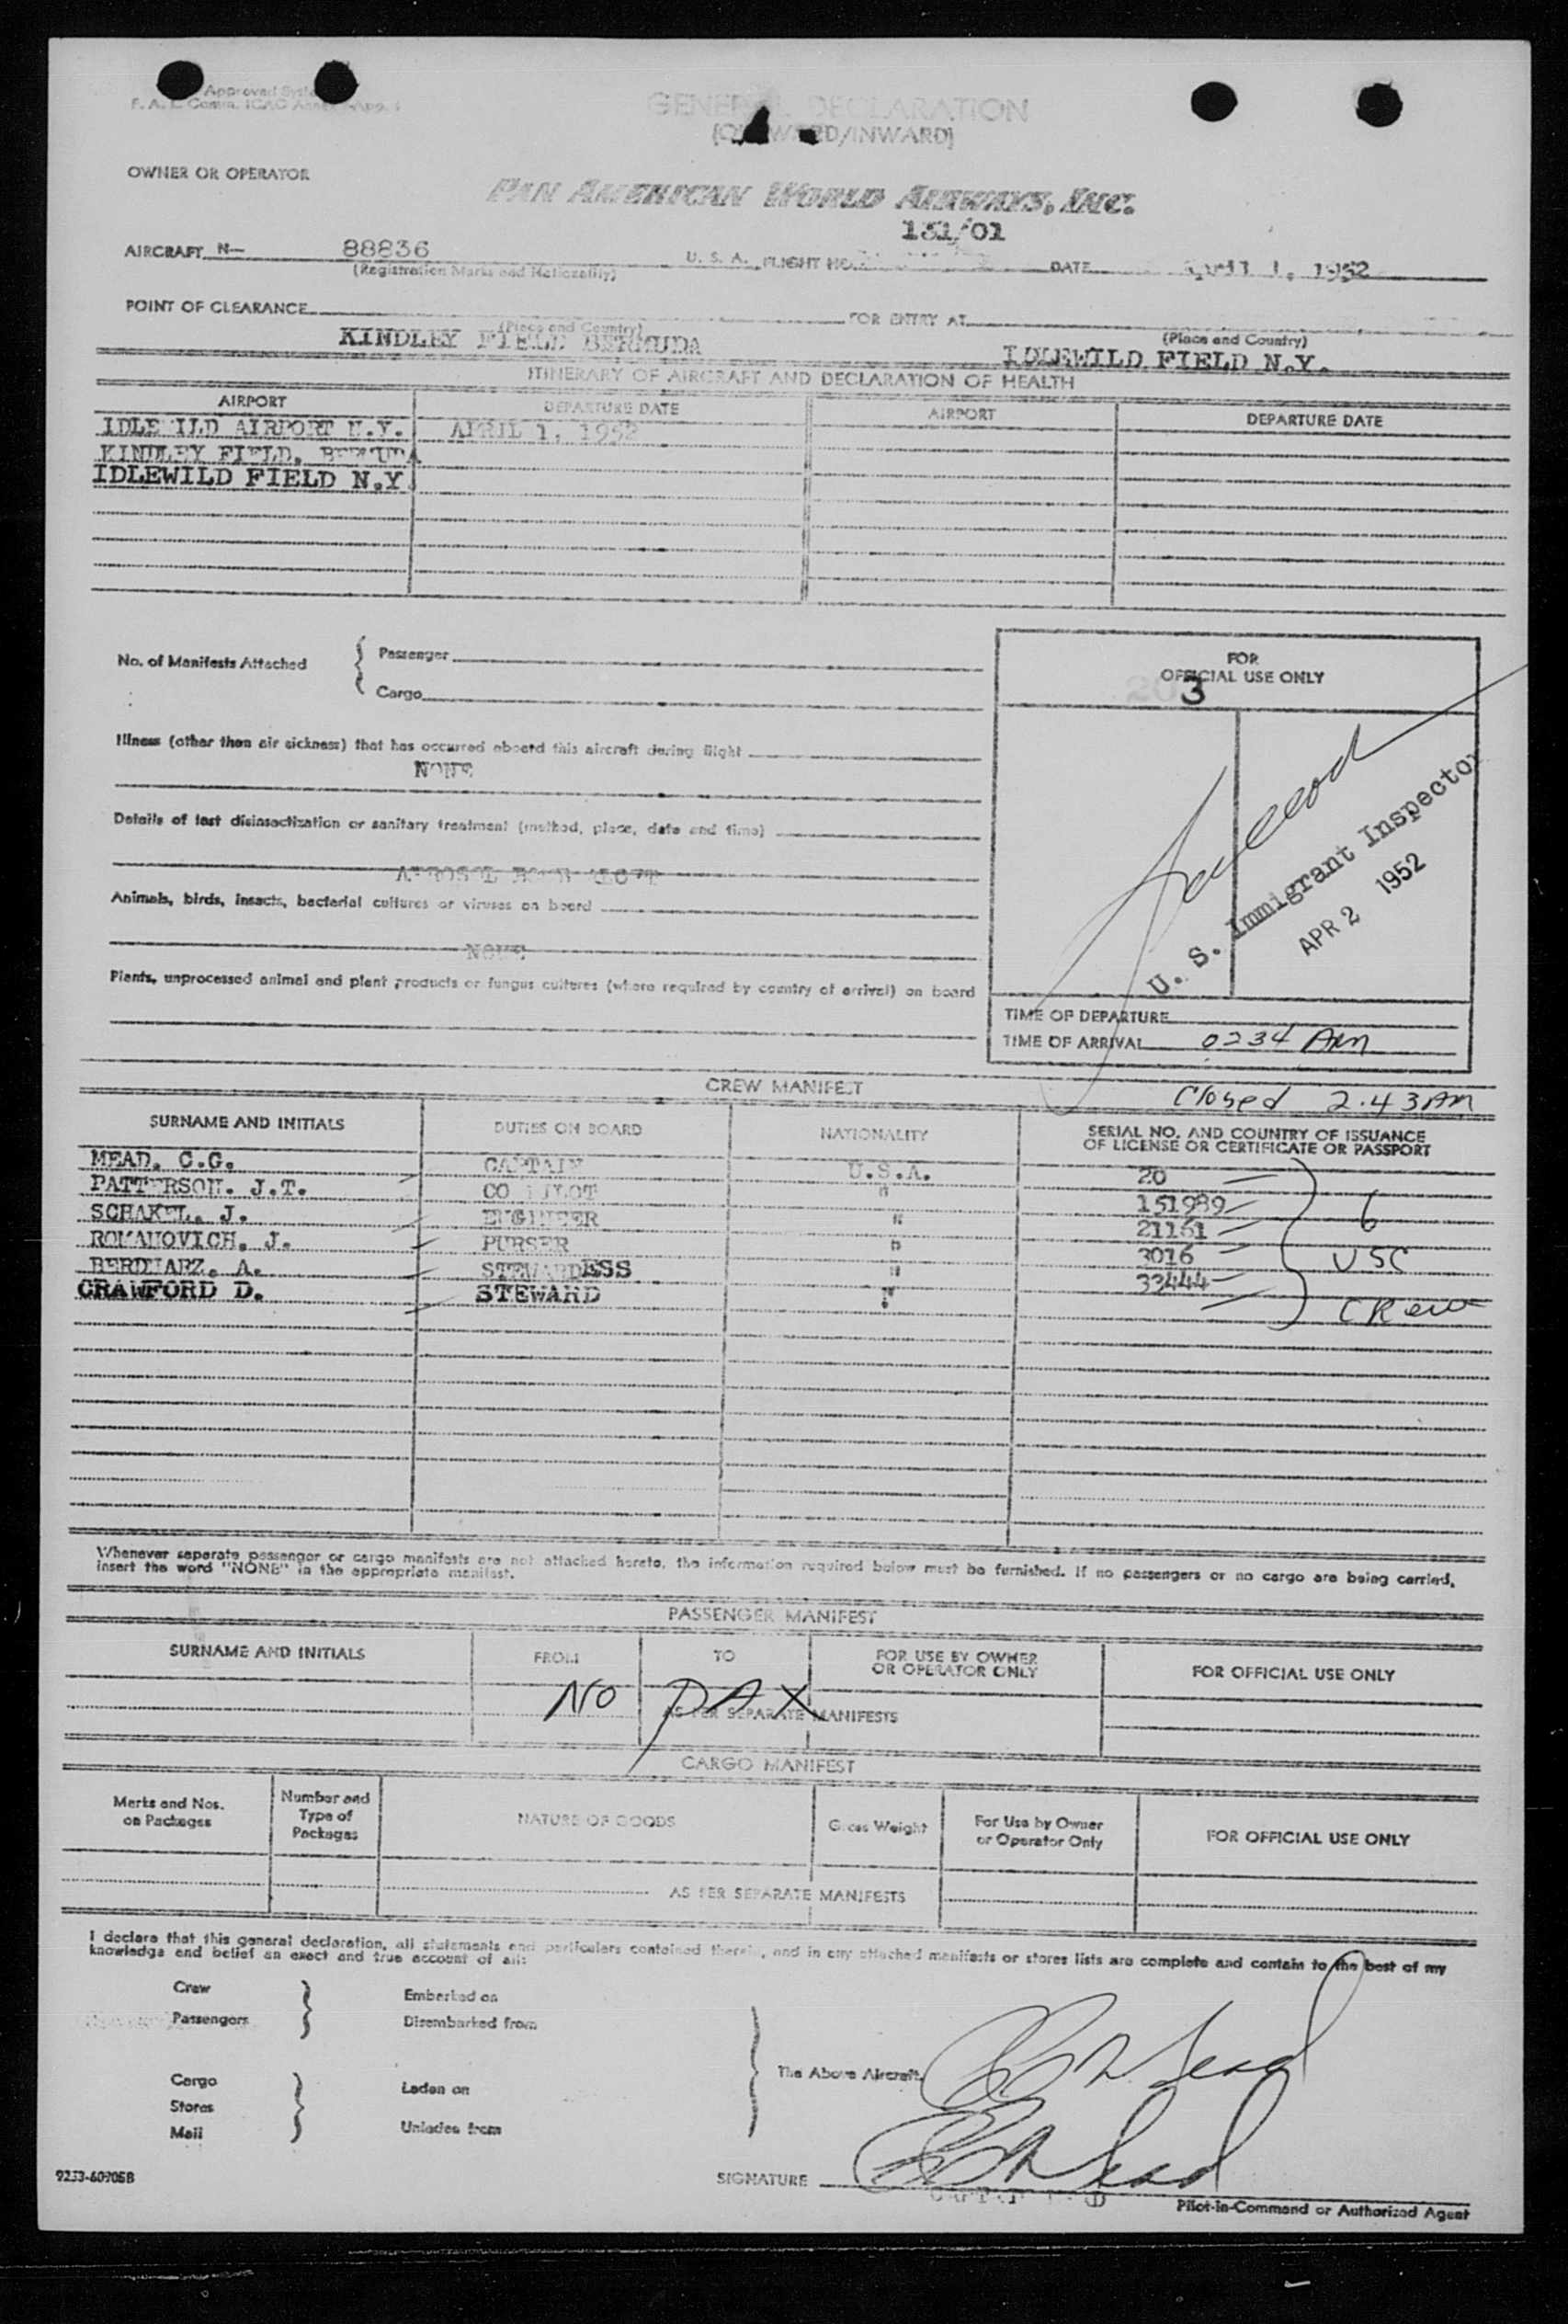 Approved
F. A. L. Comm. ICAO
GENERAL DECLARATION
(OUTWARD/INWARD)
OWNER OR OPERATOR
PAN AMERICAN WORLD AIRWAYS, INC.
131/01
AIRCRAFT N— 88836 U. S. A. FLIGHT NO. DATE April 1, 1952
(Registration Marks and Nationality)
POINT OF CLEARANCE FOR ENTRY AT
(Place and Country) (Place and Country)
KINDLEY FIELD BERMUDA IDLEWILD FIELD N.Y.
ITINERARY OF AIRCRAFT AND DECLARATION OF HEALTH
AIRPORT DEPARTURE DATE AIRPORT DEPARTURE DATE
IDLEWILD AIRPORT N.Y. APRIL 1, 1952
KINDLEY FIELD, BERMUDA
IDLEWILD FIELD N.Y.
No. of Manifests Attached { Passenger
Cargo
FOR
OFFICIAL USE ONLY
3
Illness (other than air sickness) that has occurred aboard this aircraft during flight
NONE
Details of last disinsectization or sanitary treatment (method, place, date and time)
AEROSOL BOMB
Animals, birds, insects, bacterial cultures or viruses on board
NONE
Plants, unprocessed animal and plant products or fungus cultures (where required by country of arrival) on board
U. S. Immigrant Inspector
APR 2 1952
TIME OF DEPARTURE
TIME OF ARRIVAL 0234 AM
CREW MANIFEST
Closed 2.43 AM
SURNAME AND INITIALS DUTIES ON BOARD NATIONALITY SERIAL NO. AND COUNTRY OF ISSUANCE
OF LICENSE OR CERTIFICATE OR PASSPORT
MEAD, C.G. CAPTAIN U.S.A. 20
PATTERSON. J.T. CO PILOT " 151989
SCHAKEL, J. ENGINEER " 21161
ROMANOVICH, J. PURSER " 3016
BERDHARZ, A. STEWARDESS " 33444
CRAWFORD D. STEWARD "
6
USC
CREW
Whenever separate passenger or cargo manifests are not attached hereto, the information required below must be furnished. If no passengers or no cargo are being carried,
insert the word "NONE" in the appropriate manifest.
PASSENGER MANIFEST
SURNAME AND INITIALS FROM TO FOR USE BY OWNER
OR OPERATOR ONLY FOR OFFICIAL USE ONLY
NO PAX
AS PER SEPARATE MANIFESTS
CARGO MANIFEST
Marks and Nos.
on Packages Number and
Type of
Packages NATURE OF GOODS Gross Weight For Use by Owner
or Operator Only FOR OFFICIAL USE ONLY
AS PER SEPARATE MANIFESTS
I declare that this general declaration, all statements and particulars contained therein, and in any attached manifests or stores lists are complete and contain to the best of my
knowledge and belief an exact and true account of all:
Crew Embarked on
Passengers Disembarked from
The Above Aircraft.
Cargo Laden on
Stores
Mail Unladen from
CG Mead
CG Mead
9233-60905B
SIGNATURE
CAPTAIN MEAD
Pilot-in-Command or Authorized Agent